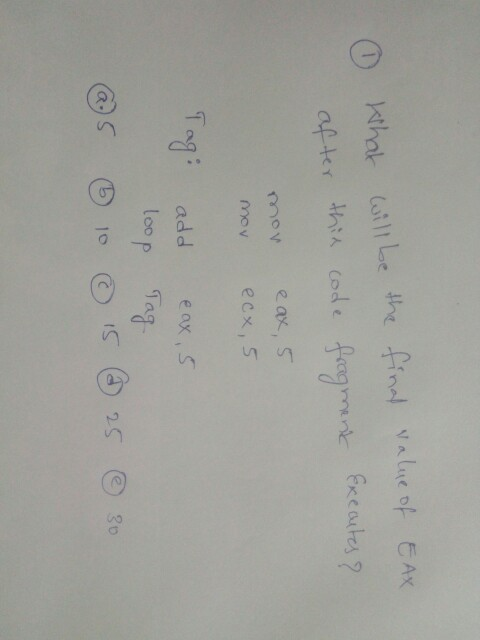 ① What will be the final value of EAX
after this code fragment Executes?
mov eax, 5
mov ecx, 5
Tag: add eax, 5
loop Tag
ⓐ. 5 ⓑ 10 ⓒ 15 ⓓ 25 ⓔ 30